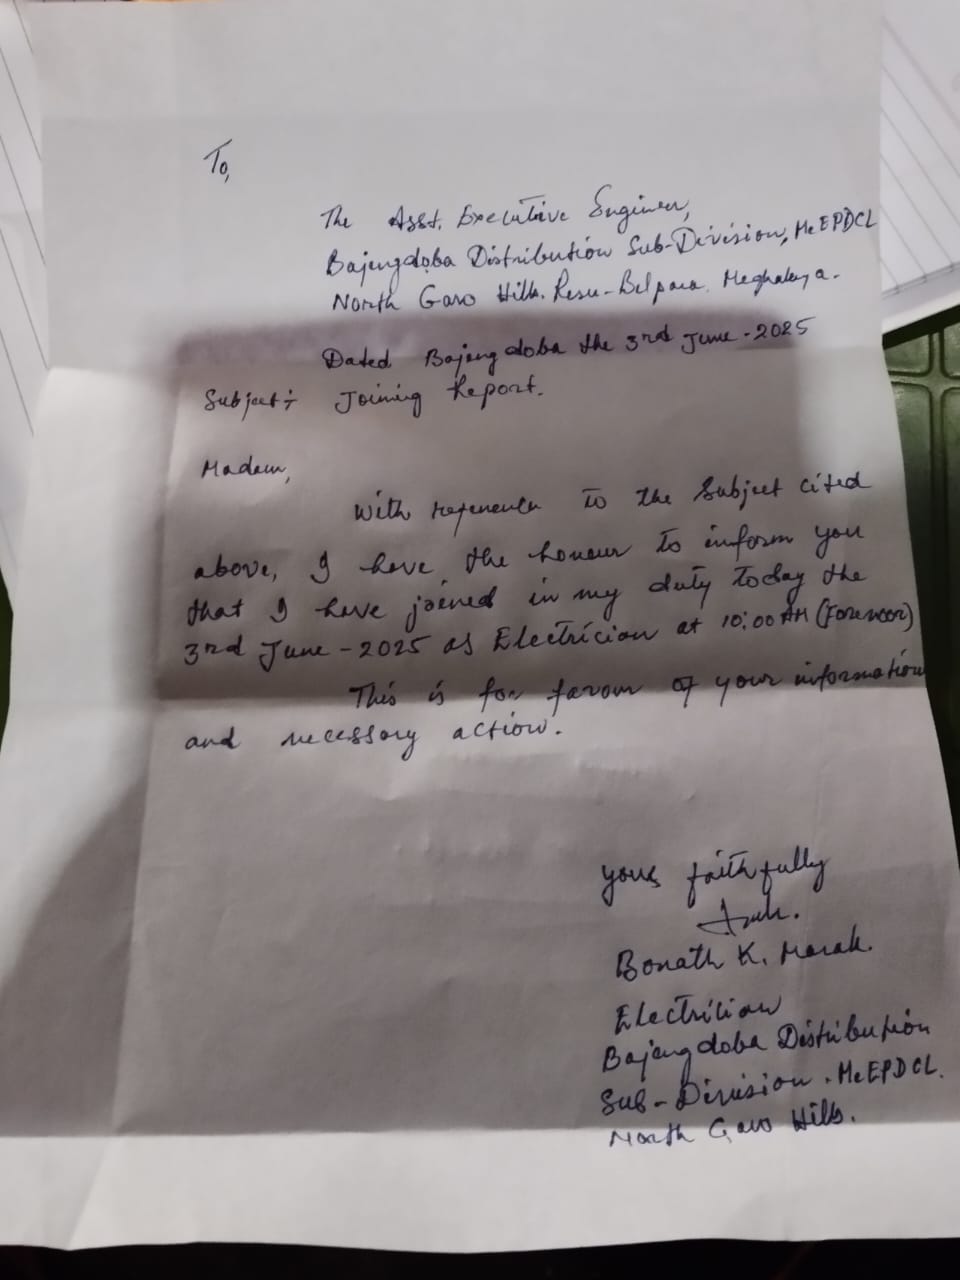 To,
The Asst. Executive Engineer,
Bajengdoba Distribution Sub-Division, MeEPDCL
North Garo Hills. Resu-Belpara. Meghalaya.
Dated Bajengdoba the 3rd June-2025
Subject:- Joining Report.
Madam,
With reference to the Subject cited
above, I have the honour to inform you
that I have joined in my duty today the
3rd June-2025 as Electrician at 10:00 AM (Forenoon)
This is for favour of your information
and necessary action.
yours faithfully
Bonath K. Marak.
Electrician
Bajengdoba Distribution
Sub-Division. MeEPDCL.
North Garo Hills.